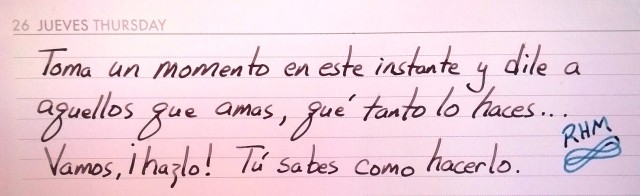 26 JUEVES THURSDAY
Toma un momento en este instante y dile a
aquellos que amas, qué tanto lo haces...
Vamos, ¡hazlo! Tú sabes como hacerlo.
RHM